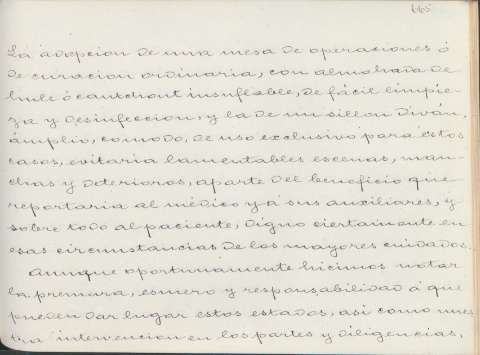 665
La adopcion de una mesa de operaciones ó
de curacion ordinaria, con almohada de
hule ó cautchout insuflable, de fácil limpie-
za y desinfeccion, y la de un sillon diván,
ámplio, comodo, de uso exclusivo para estos
casos, evitaria lamentables escenas, man-
chas y deterioros, aparte del beneficio que
reportaria al médico y á sus auxiliares, y
sobre todo al paciente, digno ciertamente en
esas circunstancias de los mayores cuidados.
Aunque oportunamente hicimos notar
la premura, esmero y responsabilidad á que
pueden dar lugar estos estados, asi como nues
tra intervencion en los partes y diligencias,